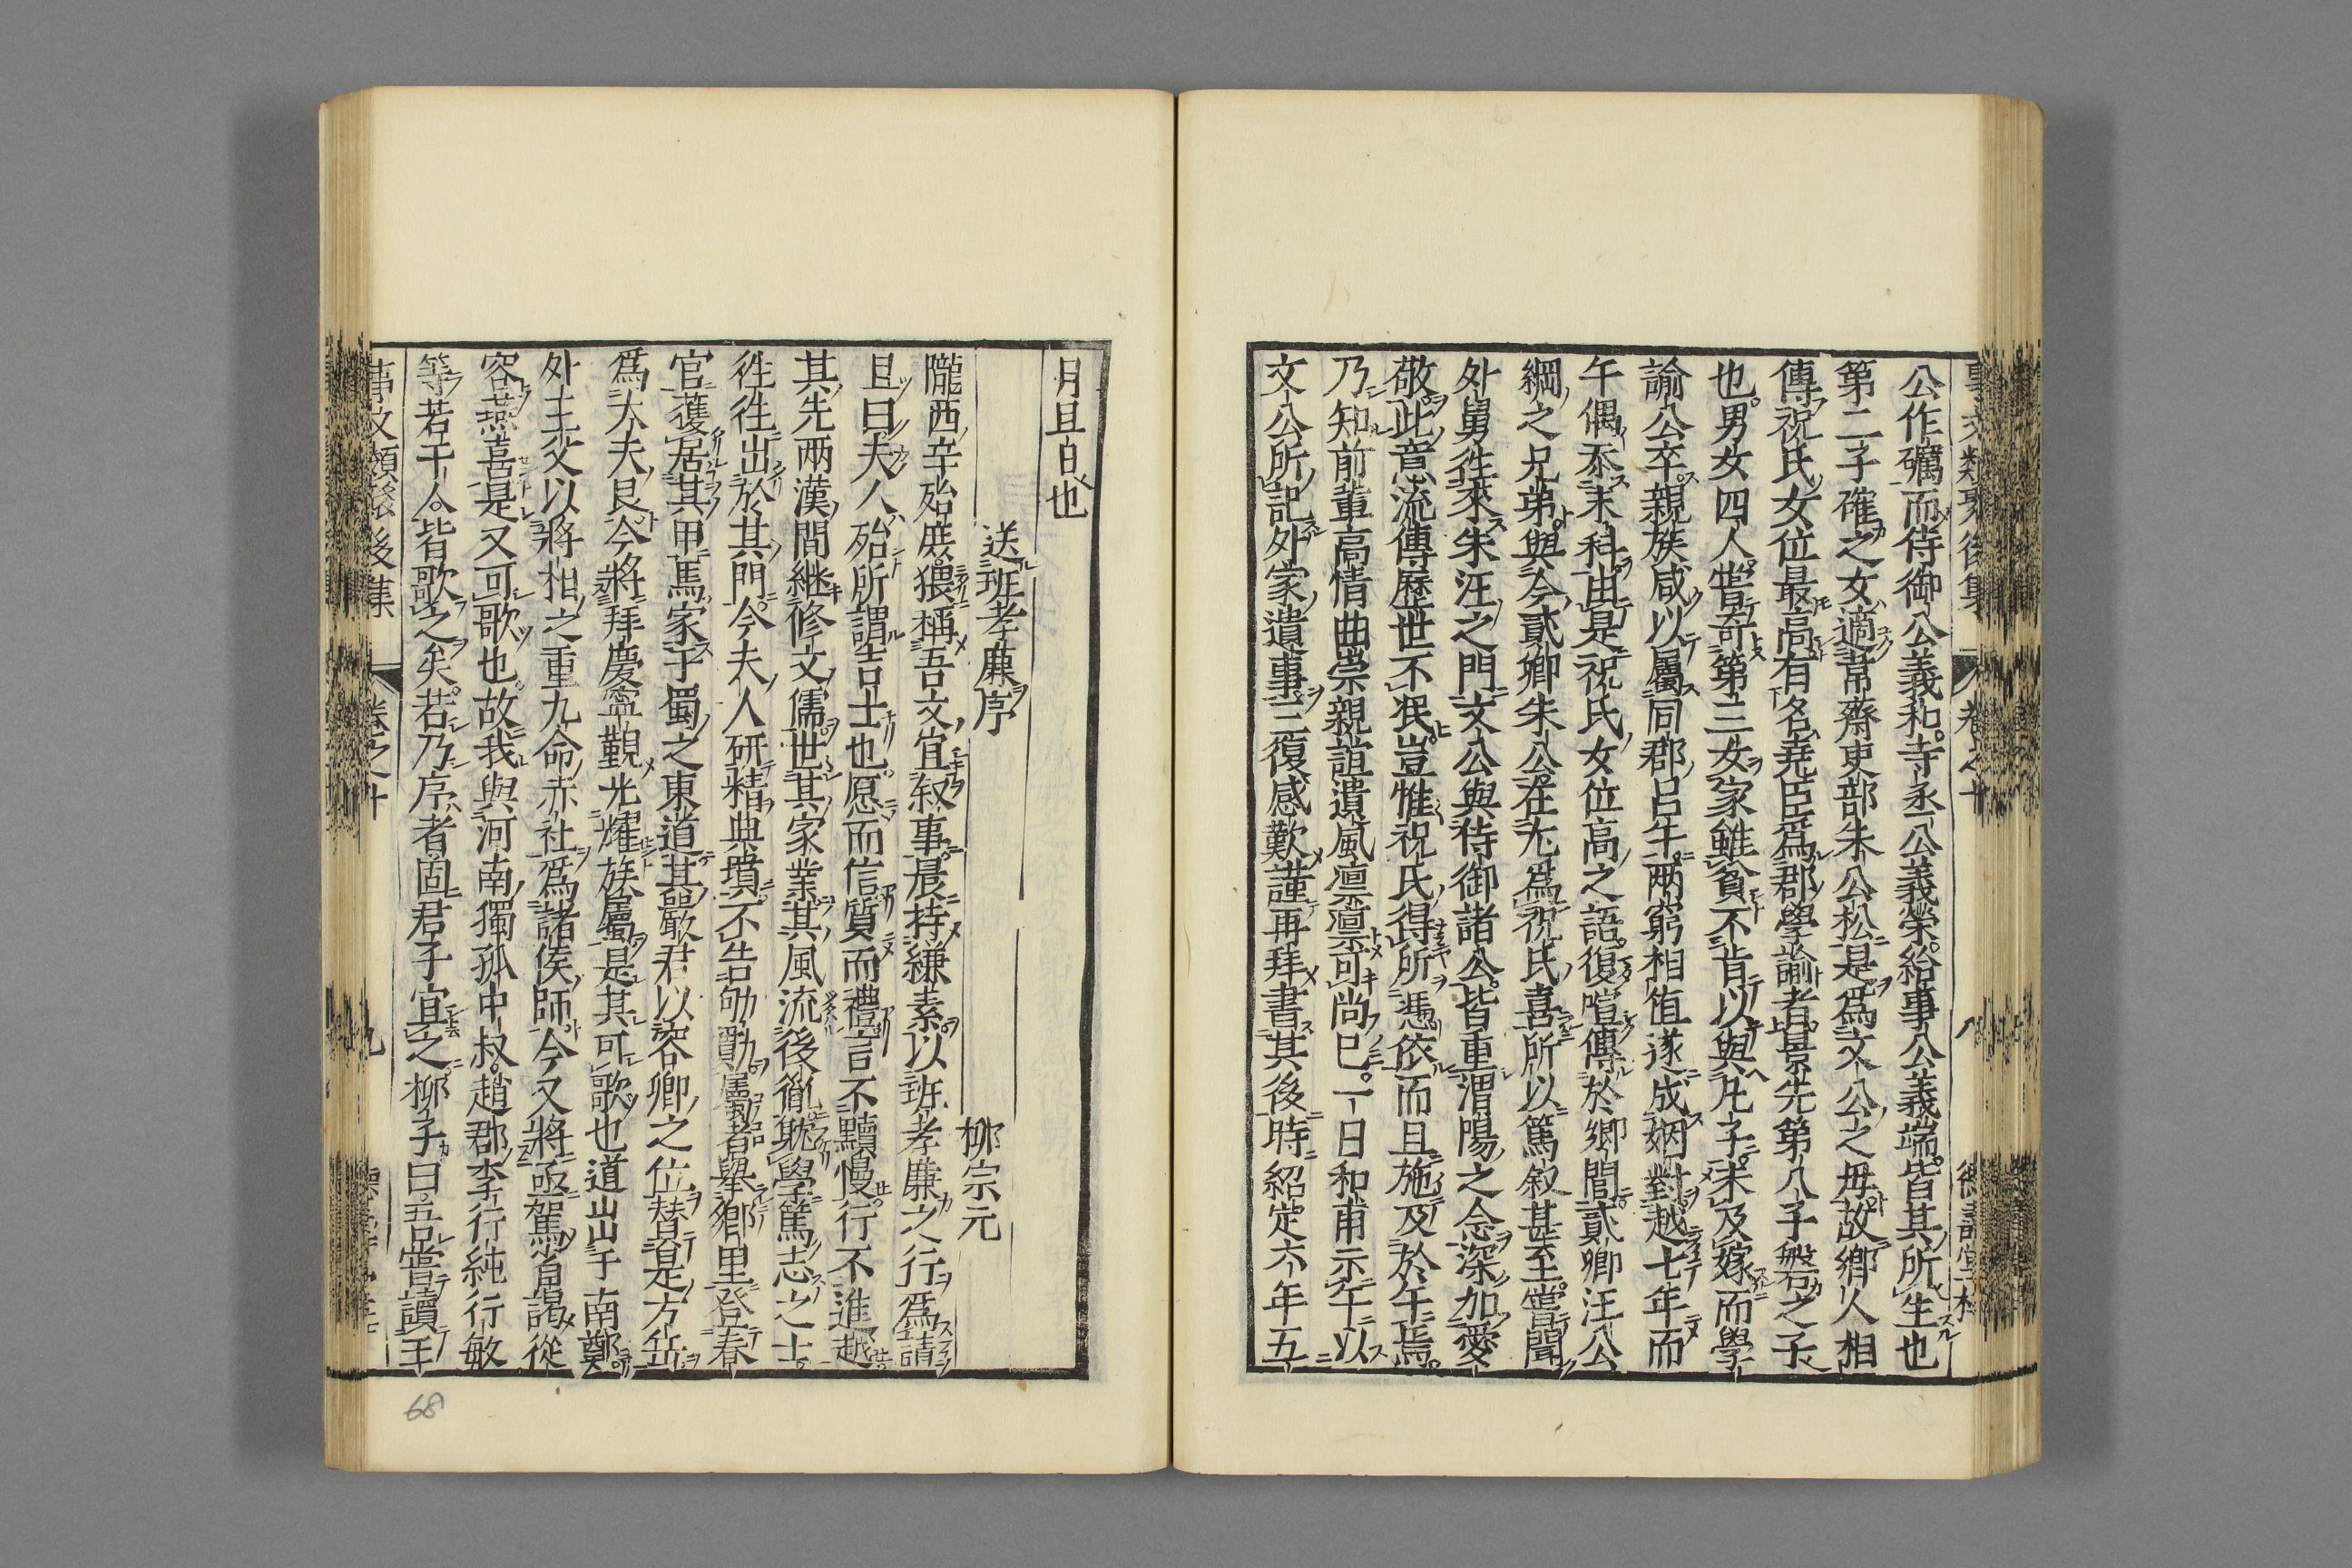 公作礪而侍御公義和寺丞公義榮給事公義端皆其所生也
第二子確之女適韋齋吏部朱公松是爲文公之母故鄉人相
傳祝氏女位最高有名堯臣爲郡學諭者景先第八子磐之子
也男女四人皆奇第三女家雖貧不肯以與凡子未及嫁而學
諭公卒親族咸以屬同郡呂午兩窮相值遂成姻對越七年而
午偶忝末科由是祝氏女位高之語復喧傳於鄉間貳卿汪公
綱之兄弟與今貳卿朱公在尢爲祝氏喜所以篤敘甚至嘗聞
外舅徃來朱汪之門文公與待御諸公皆重渭陽之念深加愛
敬此意流傳歷世不泯豈惟祝氏得所憑依而且施及於午焉
乃知前輩高情曲崇親誼遺風凛凛可尚已一日和甫示午以
文公所記外家遺事三復感歎謹再拜書其後時紹定六年五
月旦日也
送班孝廉序
柳宗元
隴西辛殆庶猥稱吾文宜敘事晨持縑素以班孝廉之行爲請
且曰夫人殆所謂吉士也愿而信質而禮言不黷慢行不進越
其先兩漢間継修文儒世其家業其風流後徹耽學篤志之士
徃徃出於其門今夫人研精典墳不告劬勩屬者舉鄉里登春
官獲居其甲焉家于蜀之東道其嚴君以容卿之位替是方岳
爲大夫良今將拜慶寧覲光耀族屬是其可歌也道出于南鄭
外王父以將相之重九命赤社爲諸侯師今又將亟駕省謁從
容燕喜是又可歌也故我與河南獨孤申叔趙郡李行純行敏
等若干人皆歌之矣若乃序者固君子宜之柳子曰吾嘗讀王
事文類聚後集 卷之十 九
事文類聚後集 卷之十 八
68